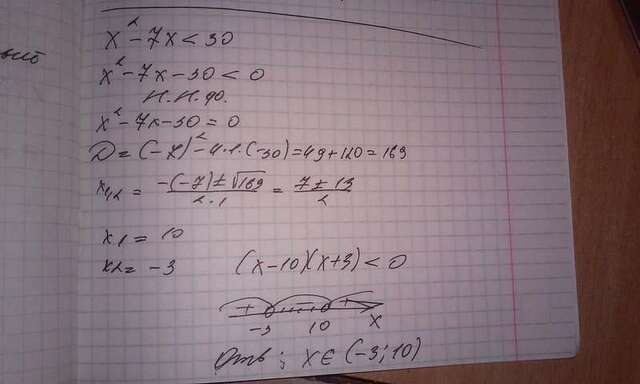 x² - 7x < 30
x² - 7x - 30 < 0
Н.Н.ф.
x² - 7x - 30 = 0
D = (-7)² - 4·1·(-30) = 49 + 120 = 169
x₁,₂ = -(-7) ± √169 / 2·1 = 7 ± 13 / 2
x1 = 10
x2 = -3
(x-10)(x+3) < 0
+ - +
-3 10 x
Отв ; x ∈ (-3; 10)